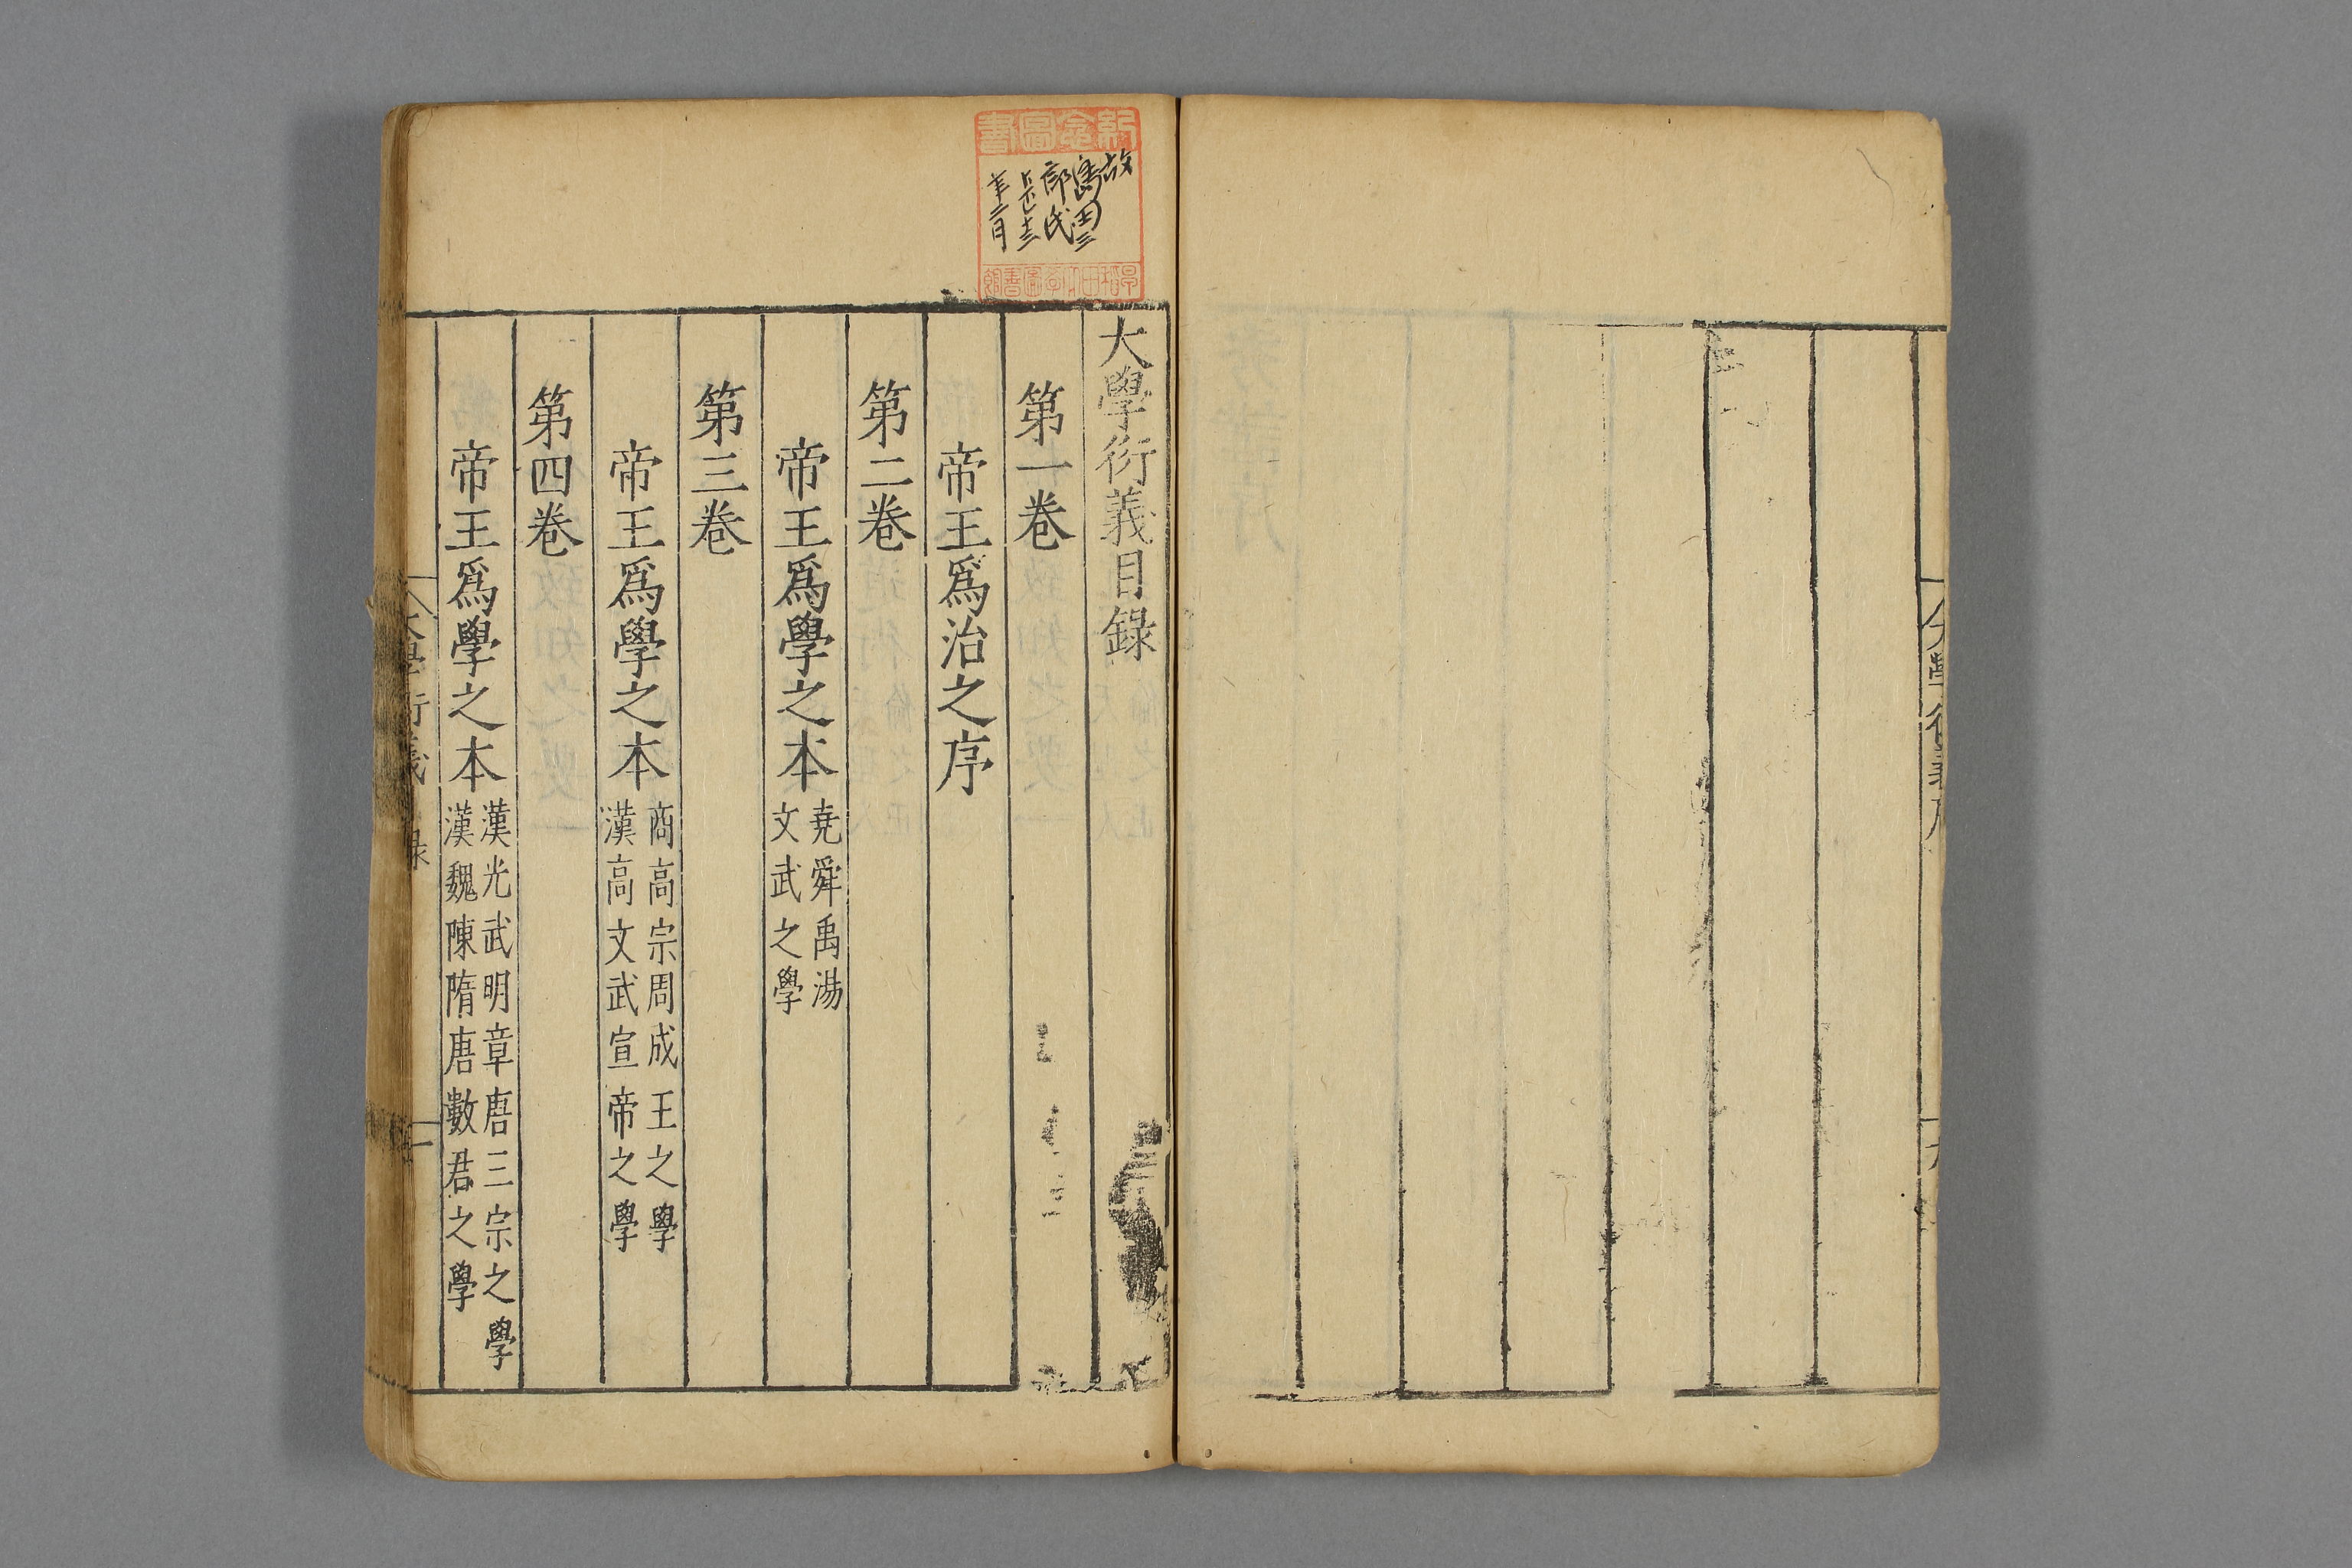 大學衍義目錄
第一卷
帝王爲治之序
第二卷
帝王爲學之本
堯舜禹湯
文武之學
第三卷
帝王爲學之本
商高宗周成王之學
漢高文武宣帝之學
第四卷
帝王爲學之本
漢光武明章唐三宗之學
漢魏陳隋唐數君之學
大學衍義
錄
一
紀念圖書
故
島田三
郎氏
大正十三
年三月
早稲田大學圖書館
大學衍義序